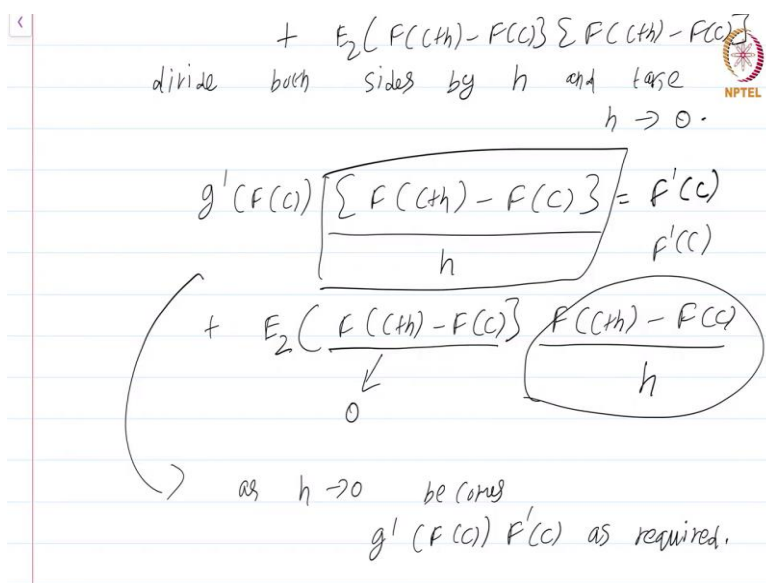 + E₂(F(c+h)-F(c)} {F(c+h)-F(c)}
divide both sides by h and take
NPTEL
h → 0.
g'(F(c)) {F(c+h)-F(c)} / h = F'(c)
F'(c)
+ E₂(F(c+h)-F(c)} F(c+h)-F(c) / h
0
as h → 0 becomes
g'(F(c)) F'(c) as required.